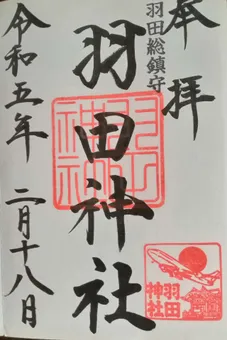 奉拝
羽田総鎮守
羽田神社
羽田神社
令和五年 二月十八日
羽田神社